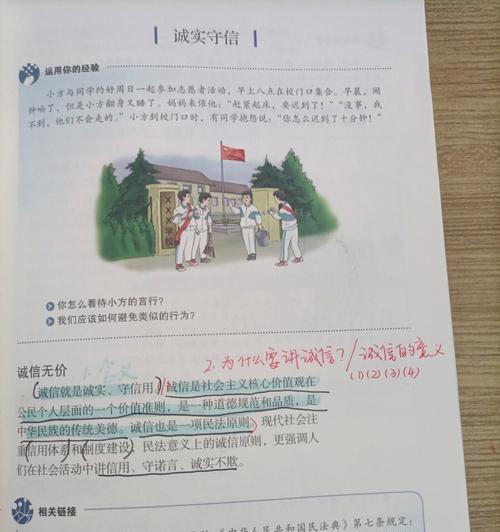 诚实守信
运用你的经验
小方与同学约好周日一起参加志愿者活动，早上八点在校门口集合。早晨，闹
钟响了，但是小方翻身又睡了。妈妈来催他：“赶紧起床，要迟到了！”“没事，我
不到，他们不会走的。”小方到校门口时，有同学抱怨说：“你怎么迟到了十分钟！”
你怎么看待小方的言行？
我们应该如何避免类似的行为？
2.为什么要讲诚信？/诚信的意义
(1)(2)(3)(4)
诚信无价
诚信就是诚实、守信用。诚信是社会主义核心价值观在
公民个人层面的一个价值准则，是一种道德规范和品质，是
中华民族的传统美德。诚信也是一项民法原则。现代社会注
重信用体系和制度建设，民法意义上的诚信原则，更强调人
们在社会活动中讲信用、守诺言、诚实不欺。
相关链接
《中华人民共和国民法典》第七条规定：